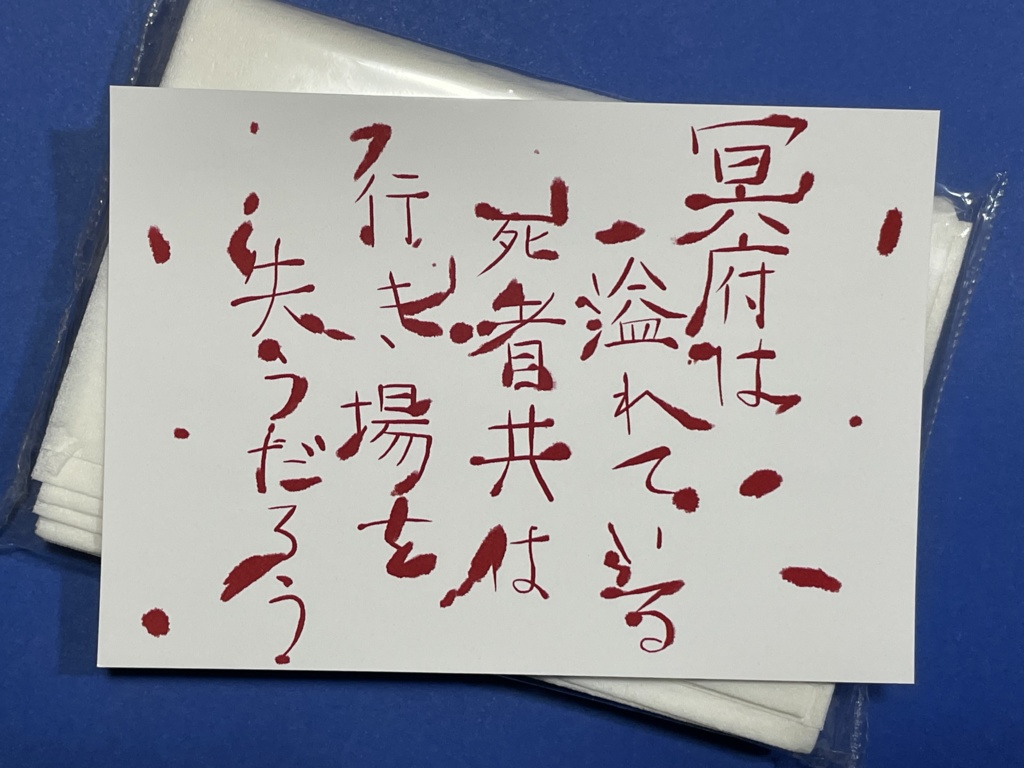 冥府は
溢れている
死者共は
行き、場を
失うだろう